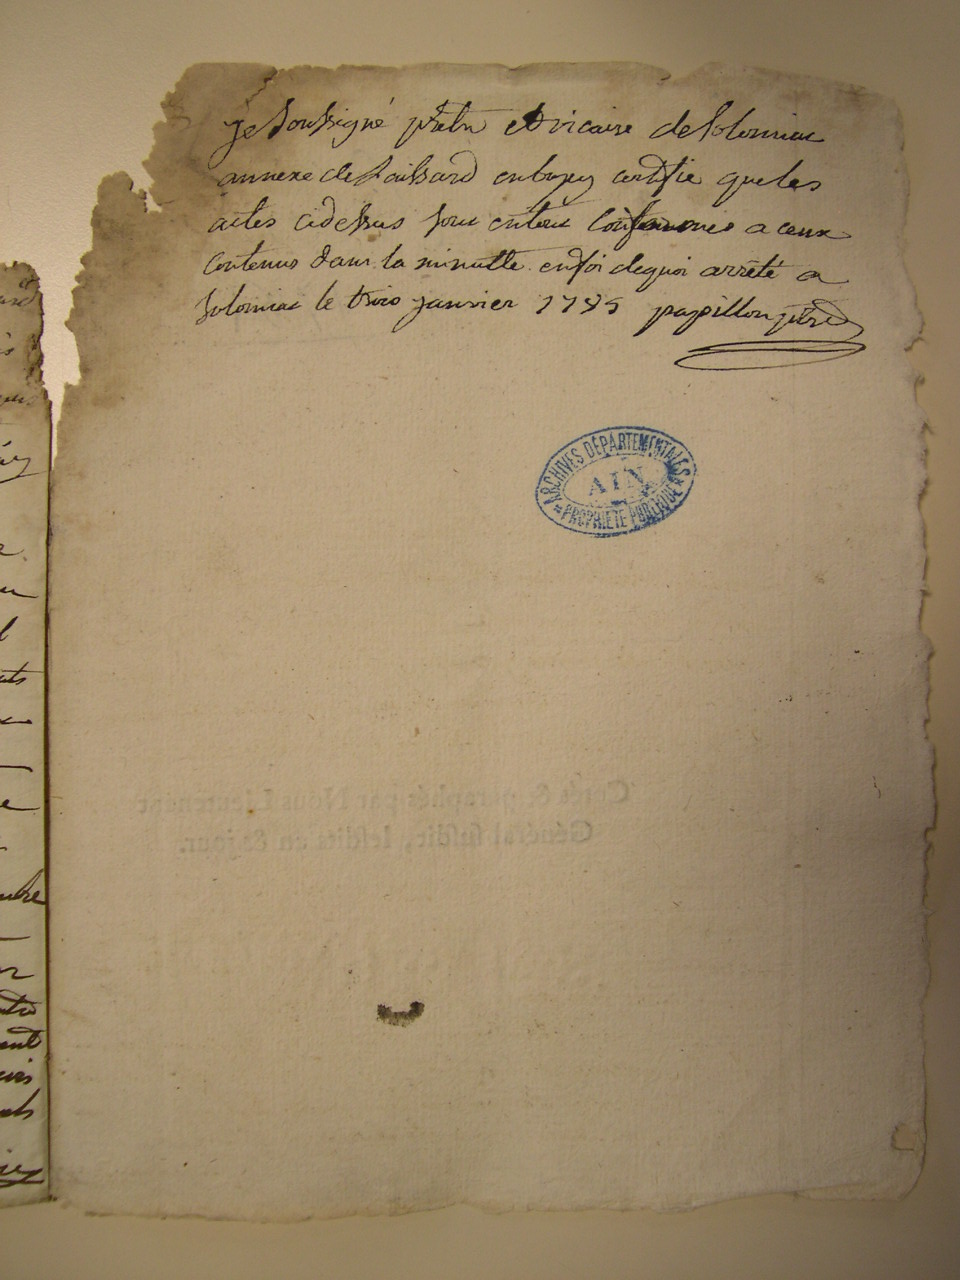 je soussigné prêtre et vicaire de Solomiac
annexe de Laissard en bugey certifie que les
actes cidessus sont en tout conformes a ceux
contenus dans la minutte. en foi dequoi arrêté a
Solomiac le trois janvier 1785 papillon ptre
ARCHIVES DÉPARTEMENTALES
AIN
PROPRIÉTÉ PUBLIQUE
Cotés & paraphés par Nous Lieutenant
Général susdit, lesdits an & jour.